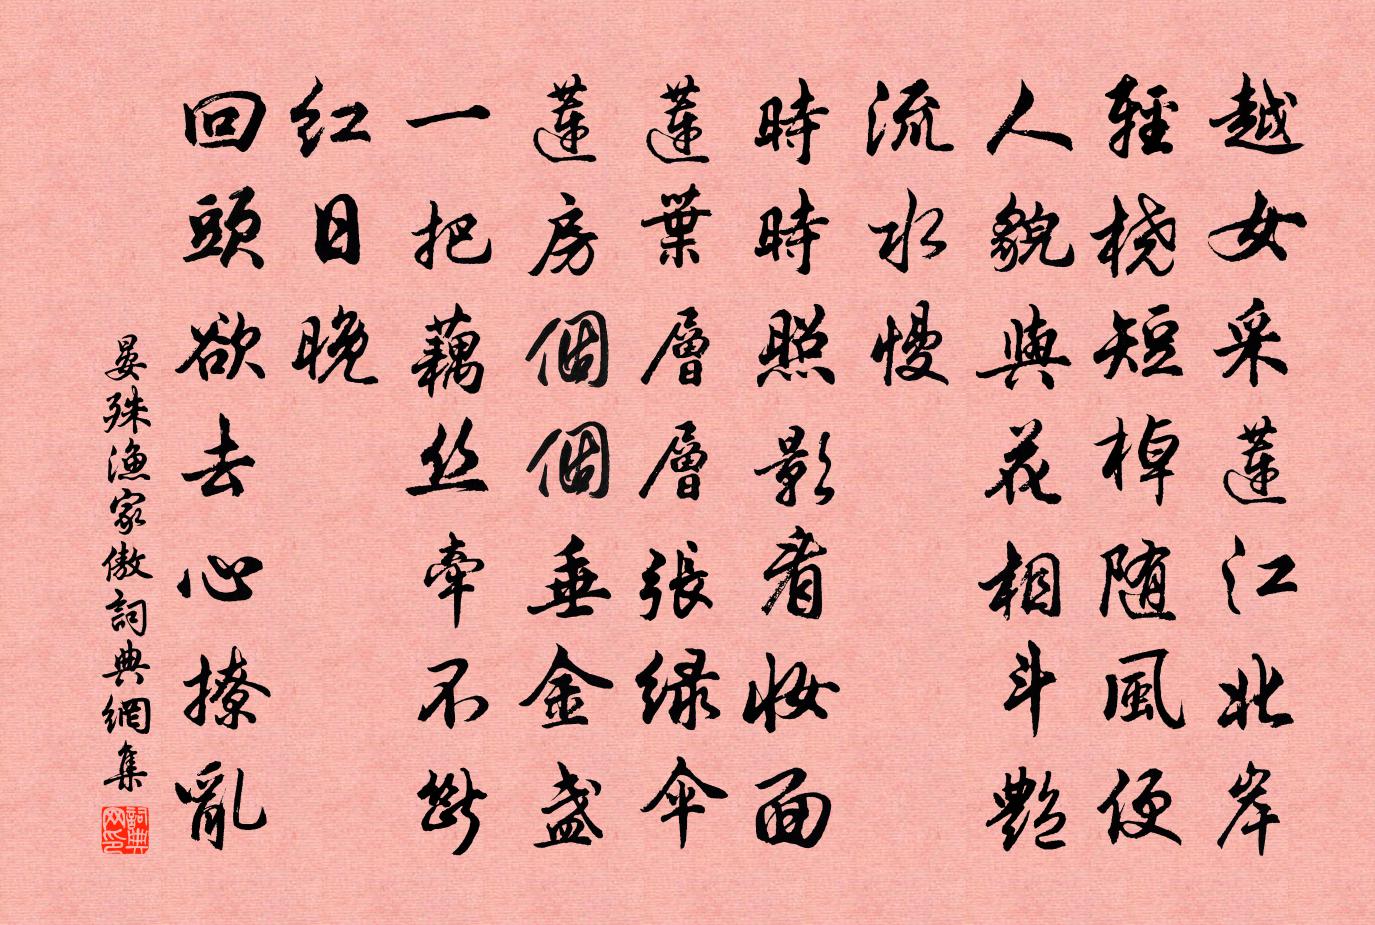 越女采蓮江北岸
輕橈短棹随風便
人貌與花相斗艷
流水慢
時時照影看妝面
蓮葉層層張緑傘
蓮房個個垂金盏
一把藕丝牽不斷
红日晚
回頭欲去心撩亂
晏殊漁家傲詞典網集
詞典
网印